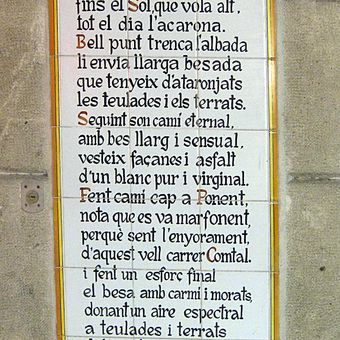 fins el Sol, que vola alt,
tot el dia l'acarona.
Bell punt trenca l'albada
li envia llarga besada
que tenyeix d'ataronjats
les teulades i els terrats.
Seguint son camí eternal,
amb bes llarg i sensual,
vesteix façanes i asfalt
d'un blanc pur i virginal.
Fent camí cap a Ponent,
nota que es va marfonent,
perquè sent l'enyorament,
d'aquest vell carrer Comtal.
i fent un esforç final
el besa amb carmí i morats,
donant un aire espectral
a teulades i terrats